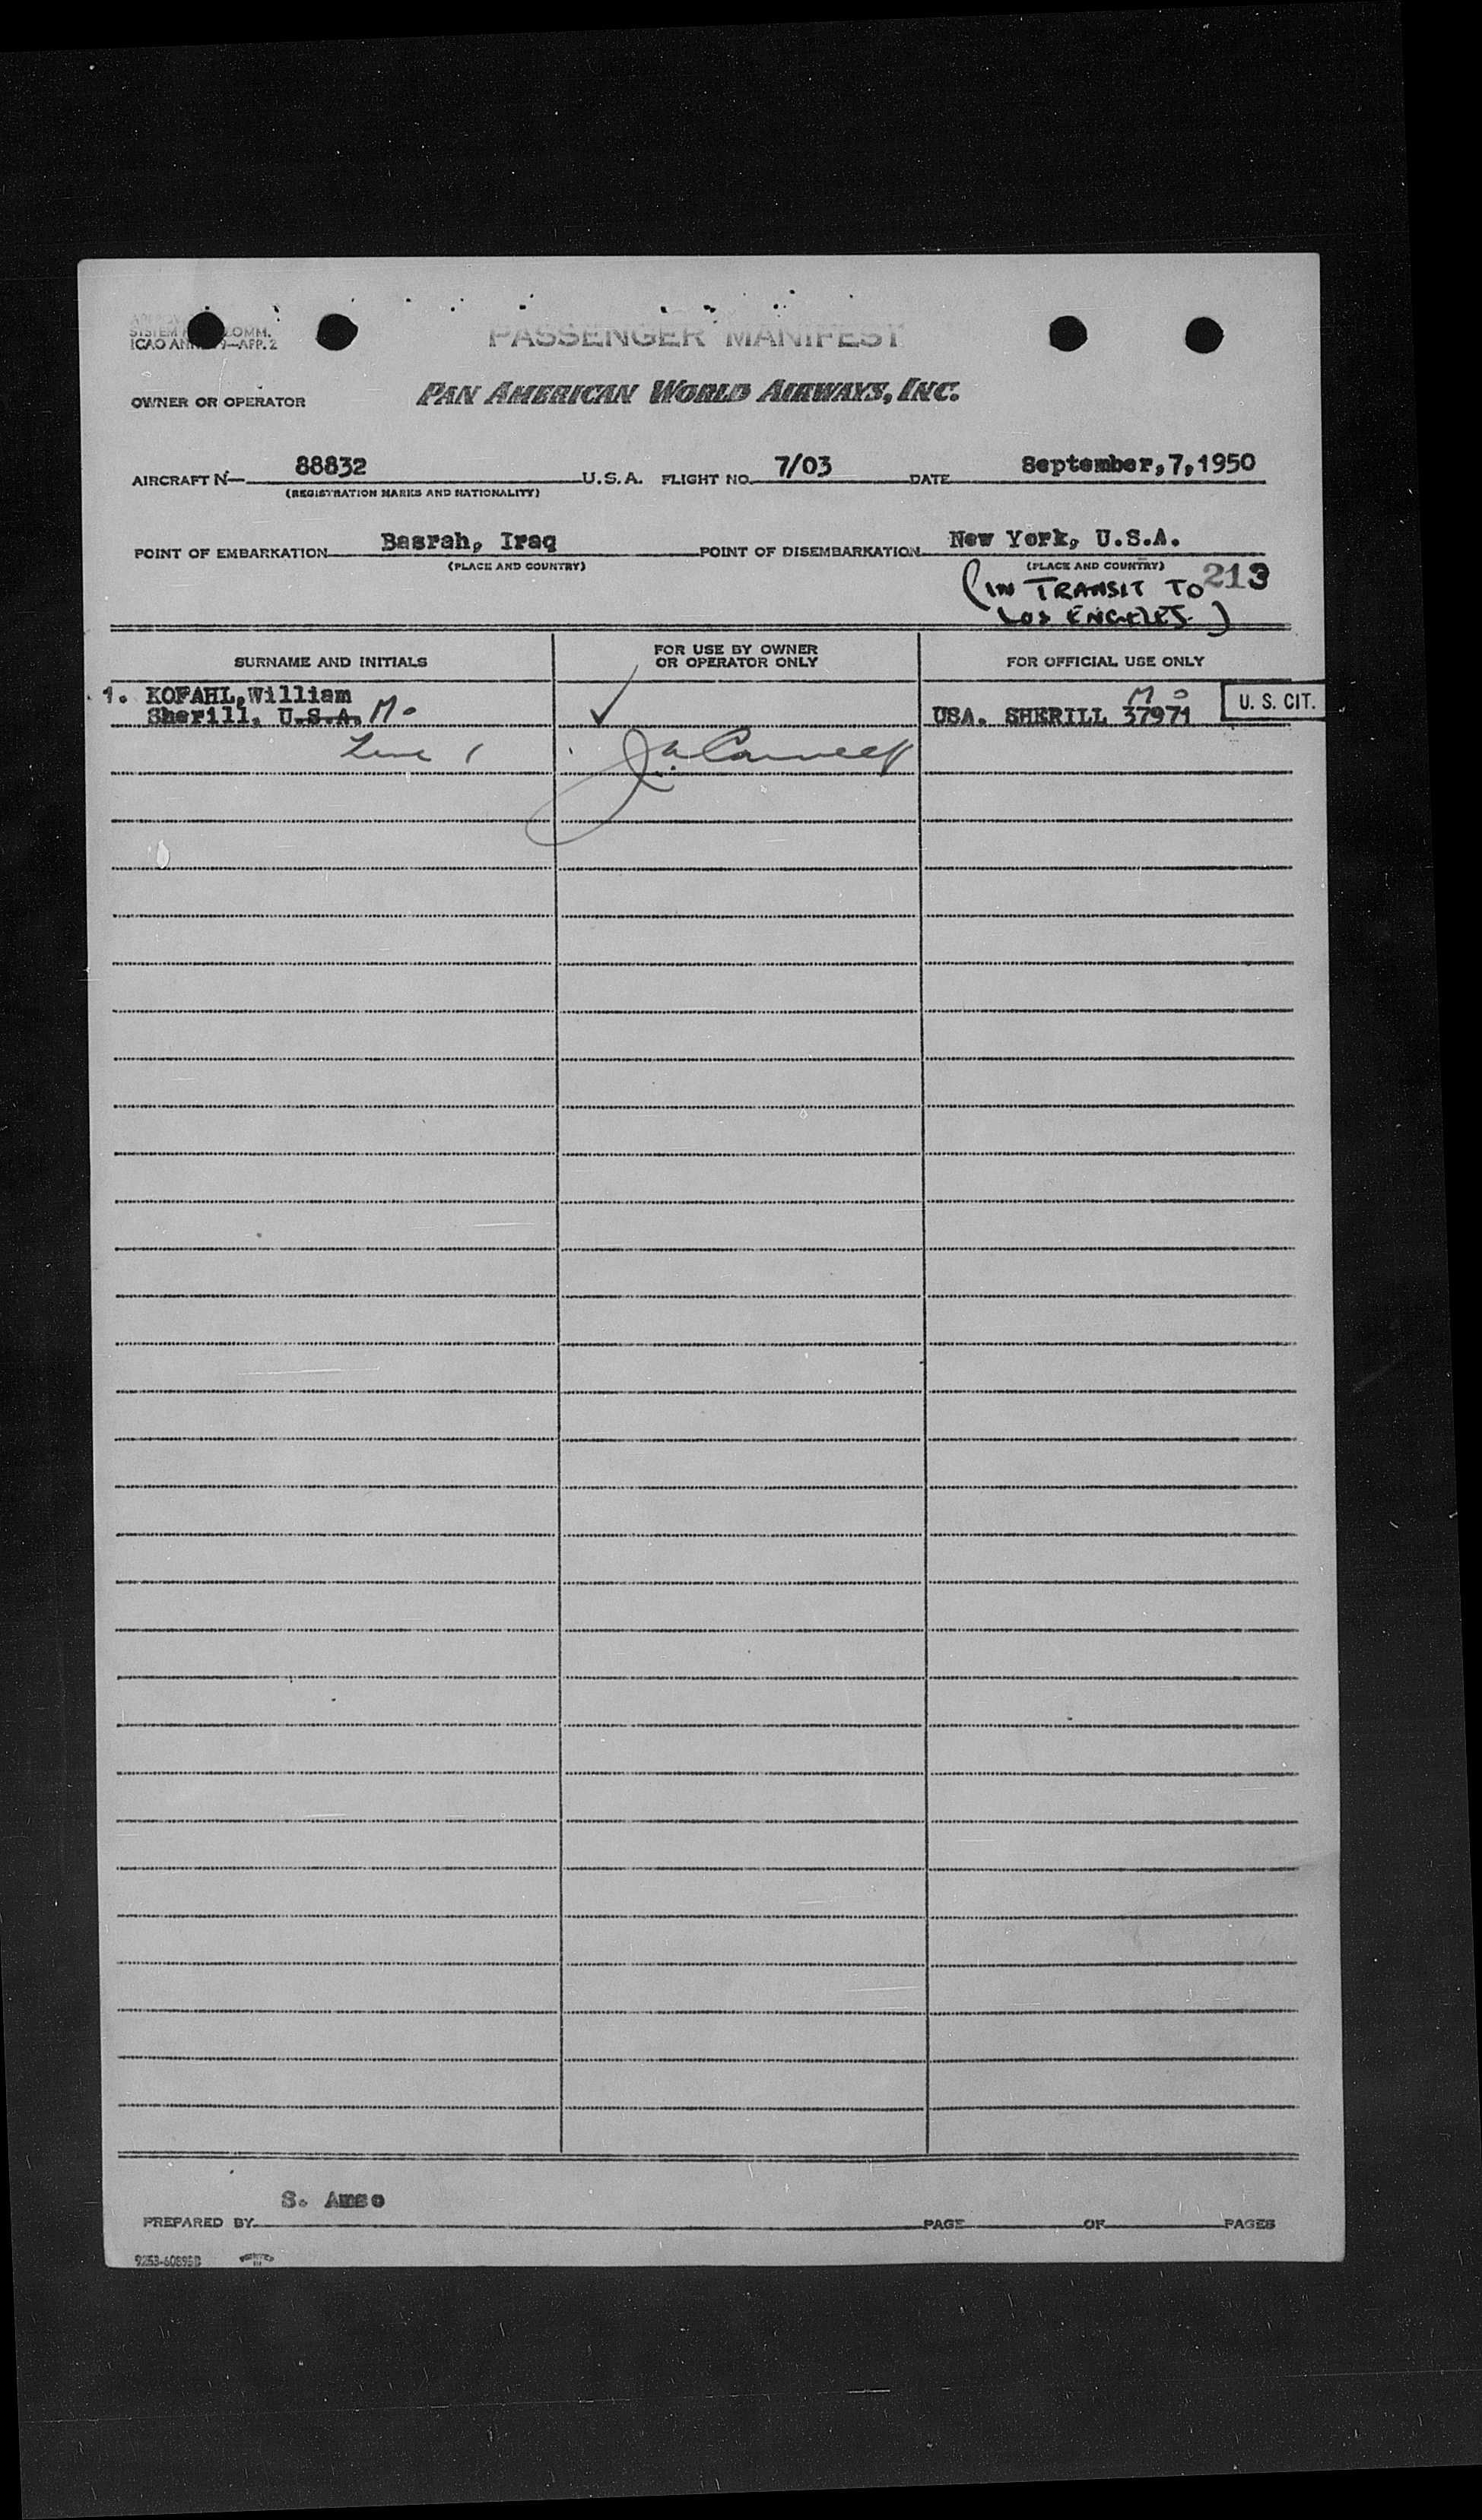 SYSTEM COMM.
ICAO ANNEX 9—APP. 2
PASSENGER MANIFEST
OWNER OR OPERATOR PAN AMERICAN WORLD AIRWAYS, INC.
AIRCRAFT N— 88832 U.S.A. FLIGHT NO. 7/03 DATE September,7,1950
(REGISTRATION MARKS AND NATIONALITY)
POINT OF EMBARKATION Basrah, Iraq POINT OF DISEMBARKATION New York, U.S.A.
(PLACE AND COUNTRY) (PLACE AND COUNTRY)
(IN TRANSIT TO 213
LOS ENGELES.)
SURNAME AND INITIALS FOR USE BY OWNER OR OPERATOR ONLY FOR OFFICIAL USE ONLY
1. KOFAHL,William M O
Sherill, U.S.A. M. ✓ USA. SHERILL 37971 U. S. CIT.
Line 1
S. Amso
PREPARED BY PAGE OF PAGES
9253-60895B